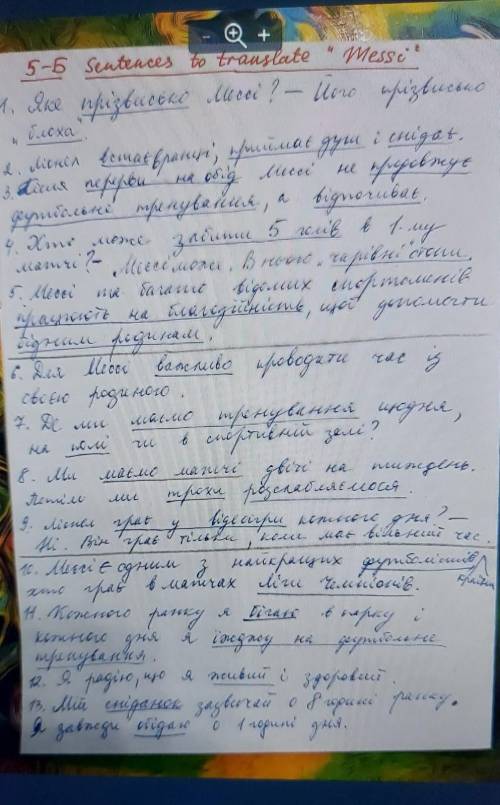 5-Б Sentences to translate "Messi"
1. Яке прізвисько Мессі? – Його прізвисько
"блоха".
2. Ліонел встає вранці, приймає душ і снідає.
3. Після перерви на обід Мессі не продовжує
футбольні тренування, а відпочиває.
4. Хто може забити 5 голів в 1-му
матчі? – Мессі може. В нього "чарівні" стопи.
5. Мессі та багато відомих спортсменів
працюють на благодійність, щоб допомогти
бідним родинам.
6. Для Мессі важливо проводити час із
своєю родиною.
7. Де ми маємо тренування щодня,
на полі чи в спортивній залі?
8. Ми маємо матчі двічі на тиждень.
Потім ми трохи розслабляємося.
9. Ліонел грає у відеоігри кожного дня? –
Ні. Він грає тільки, коли має вільний час.
10. Мессі є одним з найкращих футболістів
хто грає в матчах Ліги Чемпіонів.
11. Кожного ранку я бігаю в парку і
кожного дня я їжджу на футбольне
тренування.
12. Я радію, що я живий і здоровий.
13. Мій сніданок зазвичай о 8 годині ранку.
Я завжди обідаю о 1 годині дня.